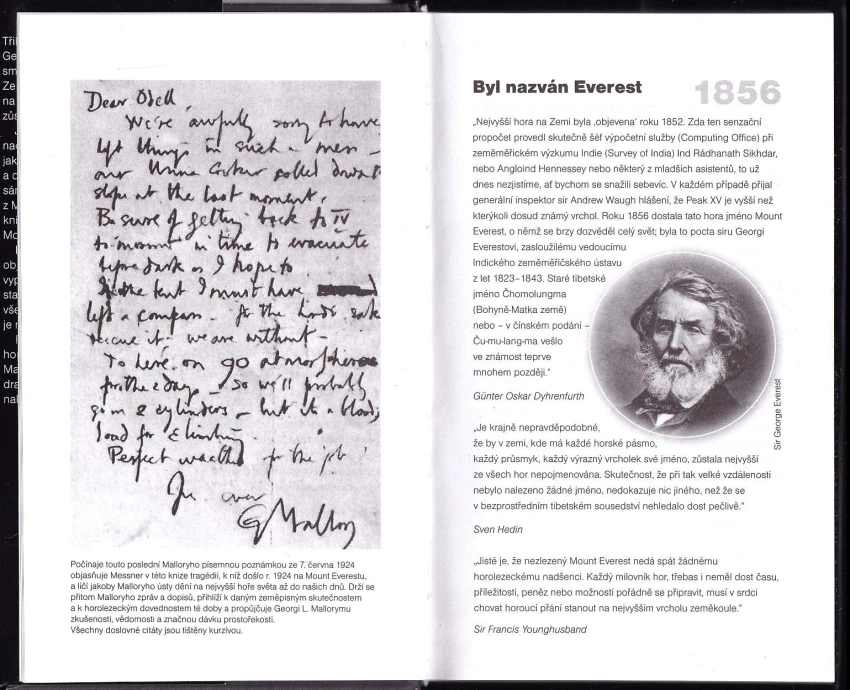 Tři
Ge
sm
Ze
na
zůs
na
jak
a c
sár
z M
kni
Mo
ob
vyp
sta
vše
je r
ho
Ma
dra
nal
Dear Odell,
We're awfully sorry to have
left things in such a mess –
our Unna Cooker rolled down the
slope at the last moment.
Be sure of getting back to IV
to-morrow in time to evacuate
before dark as I hope to
In the tent I must have
left a compass – for the Lord's sake
rescue it: we are without –
To here on 90 atmospheres
for the 2 days – so we'll probably
go on 2 cylinders – but it's a bloody
load for climbing.
Perfect weather for the job
Yrs ever
G Mallory
Počínaje touto poslední Malloryho písemnou poznámkou ze 7. června 1924
objasňuje Messner v této knize tragédii, k níž došlo r. 1924 na Mount Everestu,
a líčí jakoby Malloryho ústy dění na nejvyšší hoře světa až do našich dnů. Drží se
přitom Malloryho zpráv a dopisů, přihlíží k daným zeměpisným skutečnostem
a k horolezeckým dovednostem té doby a propůjčuje Georgi L. Mallorymu
zkušenosti, vědomosti a značnou dávku prostořekosti.
Všechny doslovné citáty jsou tištěny kurzívou.
Byl nazván Everest 1856
„Nejvyšší hora na Zemi byla ‚objevena‘ roku 1852. Zda ten senzační
propočet provedl skutečně šéf výpočetní služby (Computing Office) při
zeměměřickém výzkumu Indie (Survey of India) Ind Rádhanath Sikhdar,
nebo Angloind Hennessey nebo některý z mladších asistentů, to už
dnes nezjistíme, ať bychom se snažili sebevíc. V každém případě přijal
generální inspektor sir Andrew Waugh hlášení, že Peak XV je vyšší než
kterýkoli dosud známý vrchol. Roku 1856 dostala tato hora jméno Mount
Everest, o němž se brzy dozvěděl celý svět; byla to pocta siru Georgi
Everestovi, zasloužilému vedoucímu
Indického zeměměřičského ústavu
z let 1823–1843. Staré tibetské
jméno Čhomolungma
(Bohyně-Matka země)
nebo – v čínském podání –
Ču-mu-lang-ma vešlo
ve známost teprve
mnohem později.“
Günter Oskar Dyhrenfurth
Sir George Everest
„Je krajně nepravděpodobné,
že by v zemi, kde má každé horské pásmo,
každý průsmyk, každý výrazný vrcholek své jméno, zůstala nejvyšší
ze všech hor nepojmenována. Skutečnost, že při tak velké vzdálenosti
nebylo nalezeno žádné jméno, nedokazuje nic jiného, než že se
v bezprostředním tibetském sousedství nehledalo dost pečlivě.“
Sven Hedin
„Jisté je, že nezlezený Mount Everest nedá spát žádnému
horolezeckému nadšenci. Každý milovník hor, třebas i neměl dost času,
příležitosti, peněz nebo možností pořádně se připravit, musí v srdci
chovat horoucí přání stanout na nejvyšším vrcholu zeměkoule.“
Sir Francis Younghusband